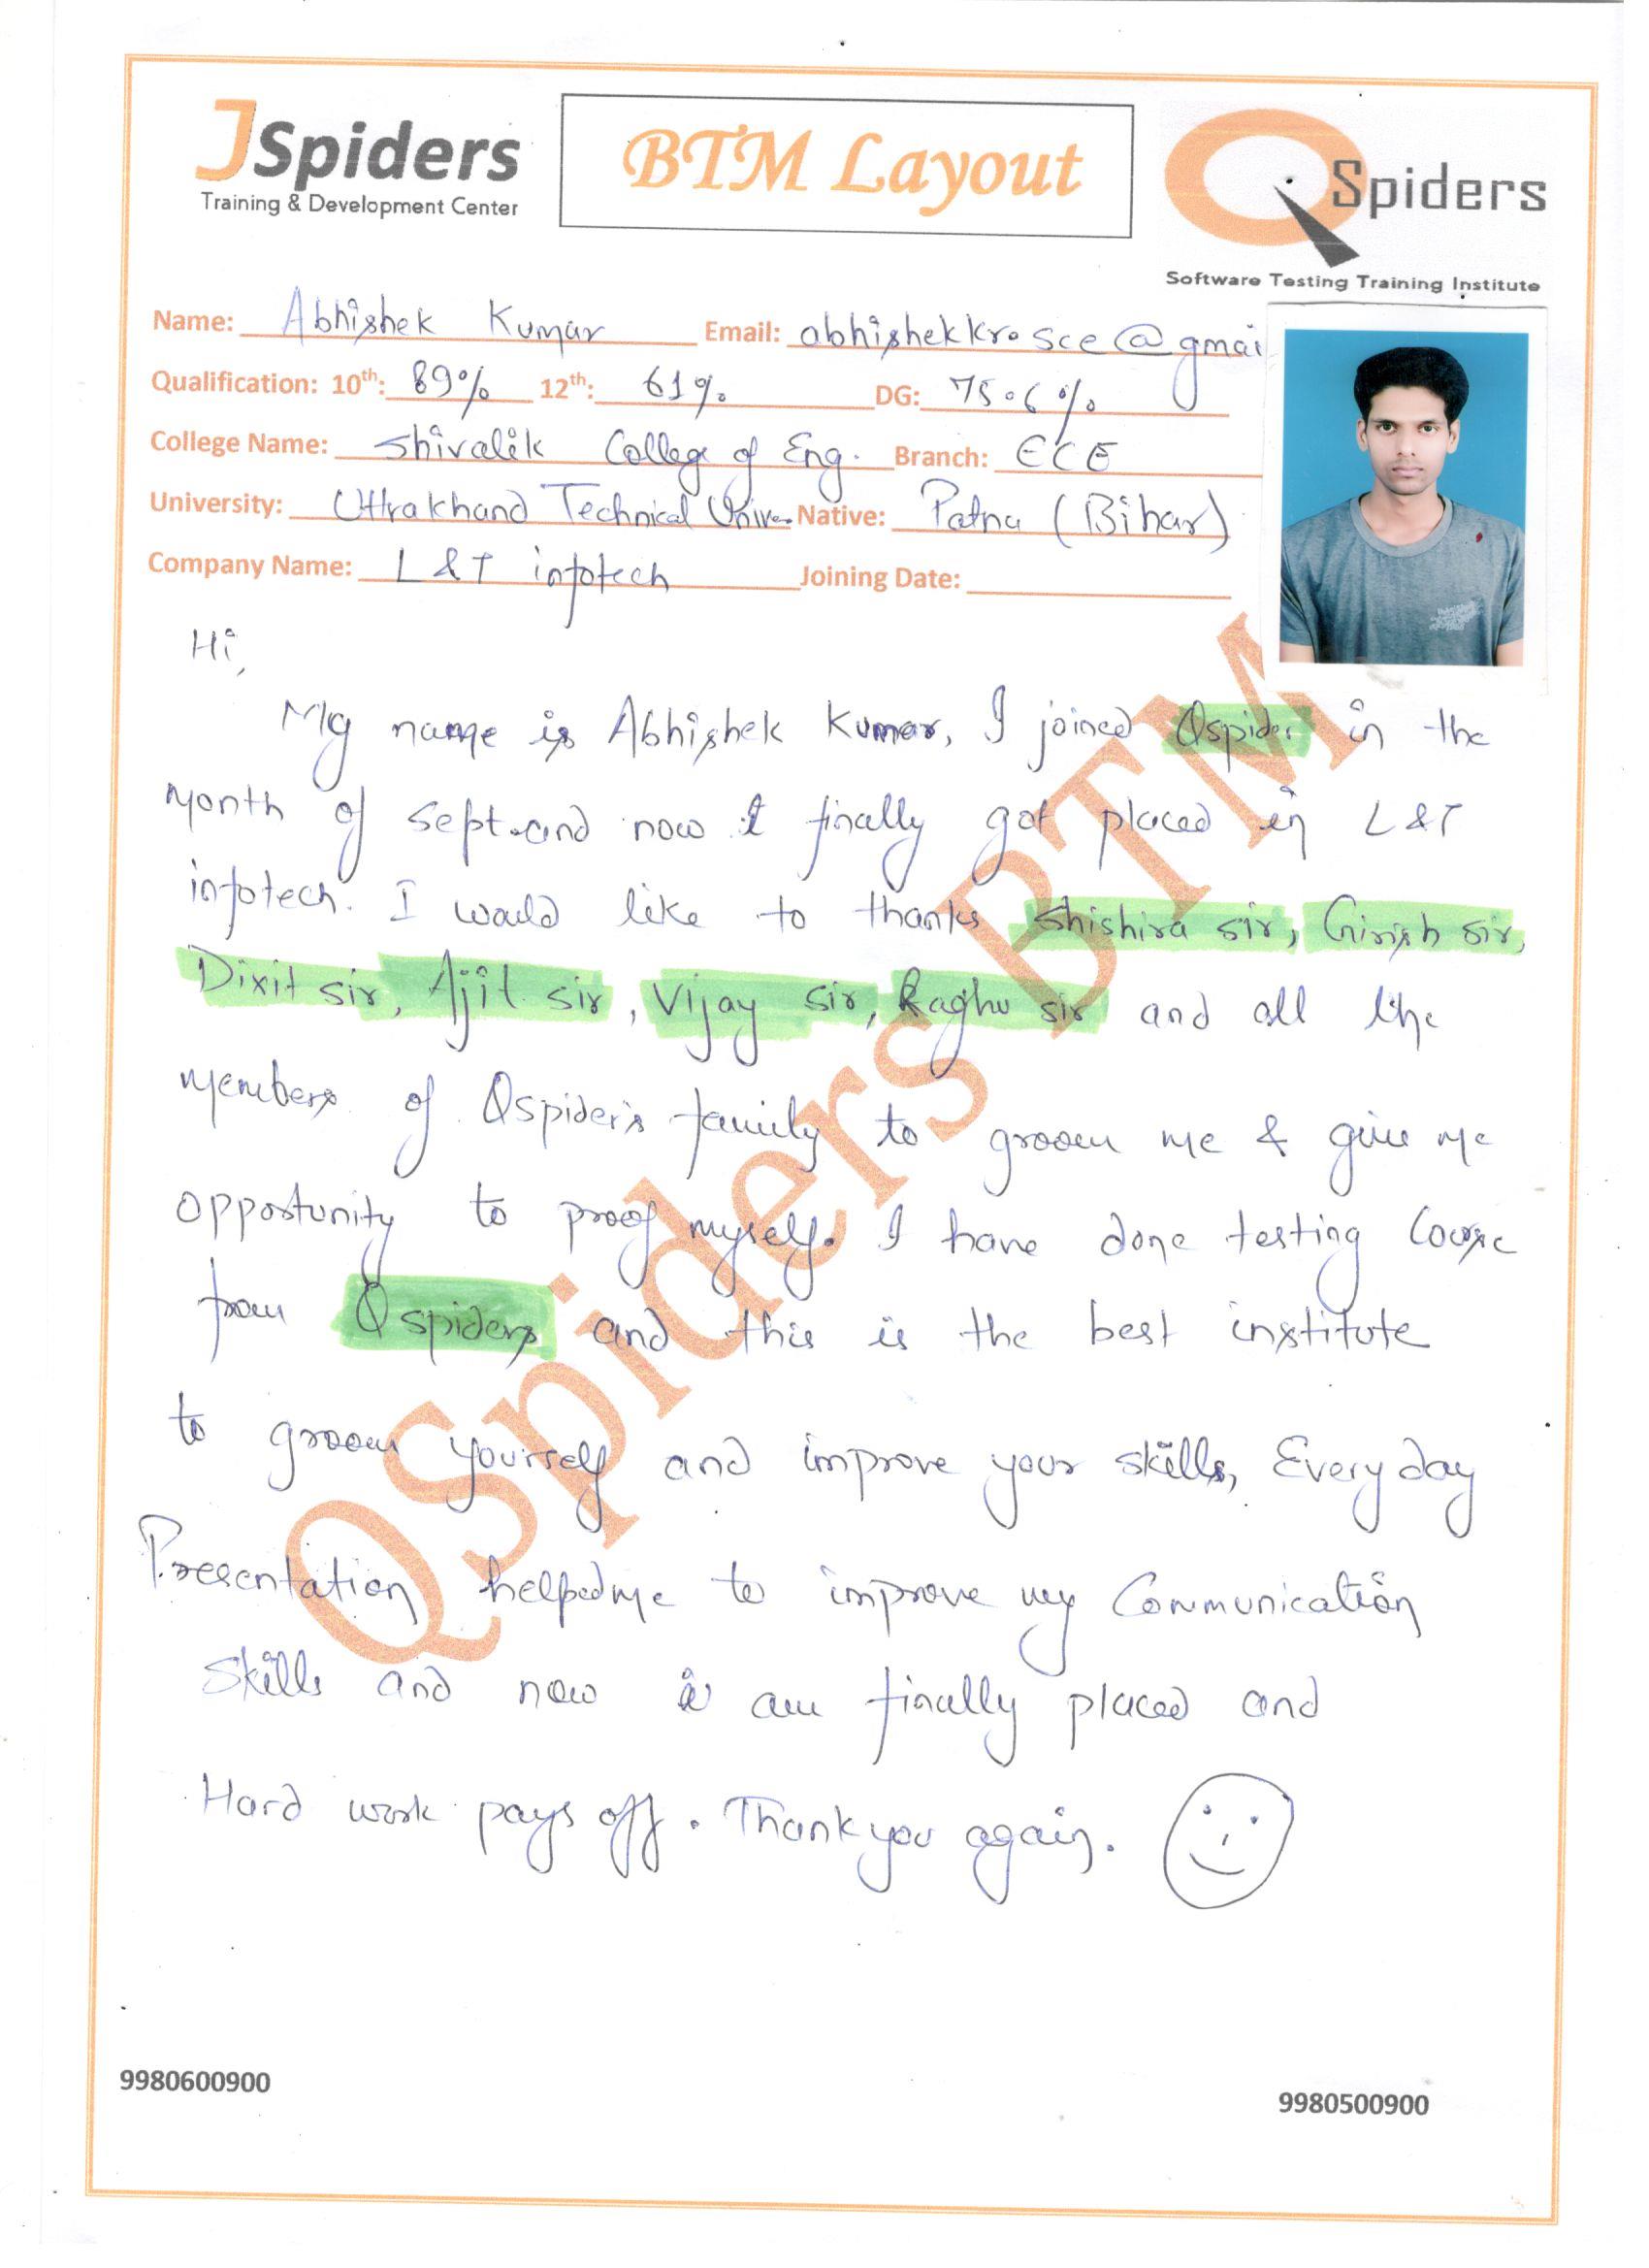 JSpiders
Training & Development Center
BTM Layout
QSpiders
Software Testing Training Institute
Name: Abhishek Kumar Email: abhishekkr.sce@gmai
Qualification: 10th: 89% 12th: 61% DG: 75.6%
College Name: Shivalik College of Eng. Branch: ECE
University: Uttrakhand Technical Unive. Native: Patna (Bihar)
Company Name: L&T infotech Joining Date:
Hi,
My name is Abhishek Kumar, I joined Qspider in the
month of sept. and now I finally got placed in L&T
infotech. I would like to thanks Shishira sir, Girish sir,
Dixit sir, Ajit sir, Vijay sir, Raghu sir and all the
members of Qspider's family to groom me & give me
opportunity to proof myself. I have done testing course
from Qspiders and this is the best institute
to groom yourself and improve your skills, Every day
Presentation helped me to improve my Communication
skills and now i am finally placed and
Hard work pays off. Thank you again.
QSpiders BTM
9980600900
9980500900